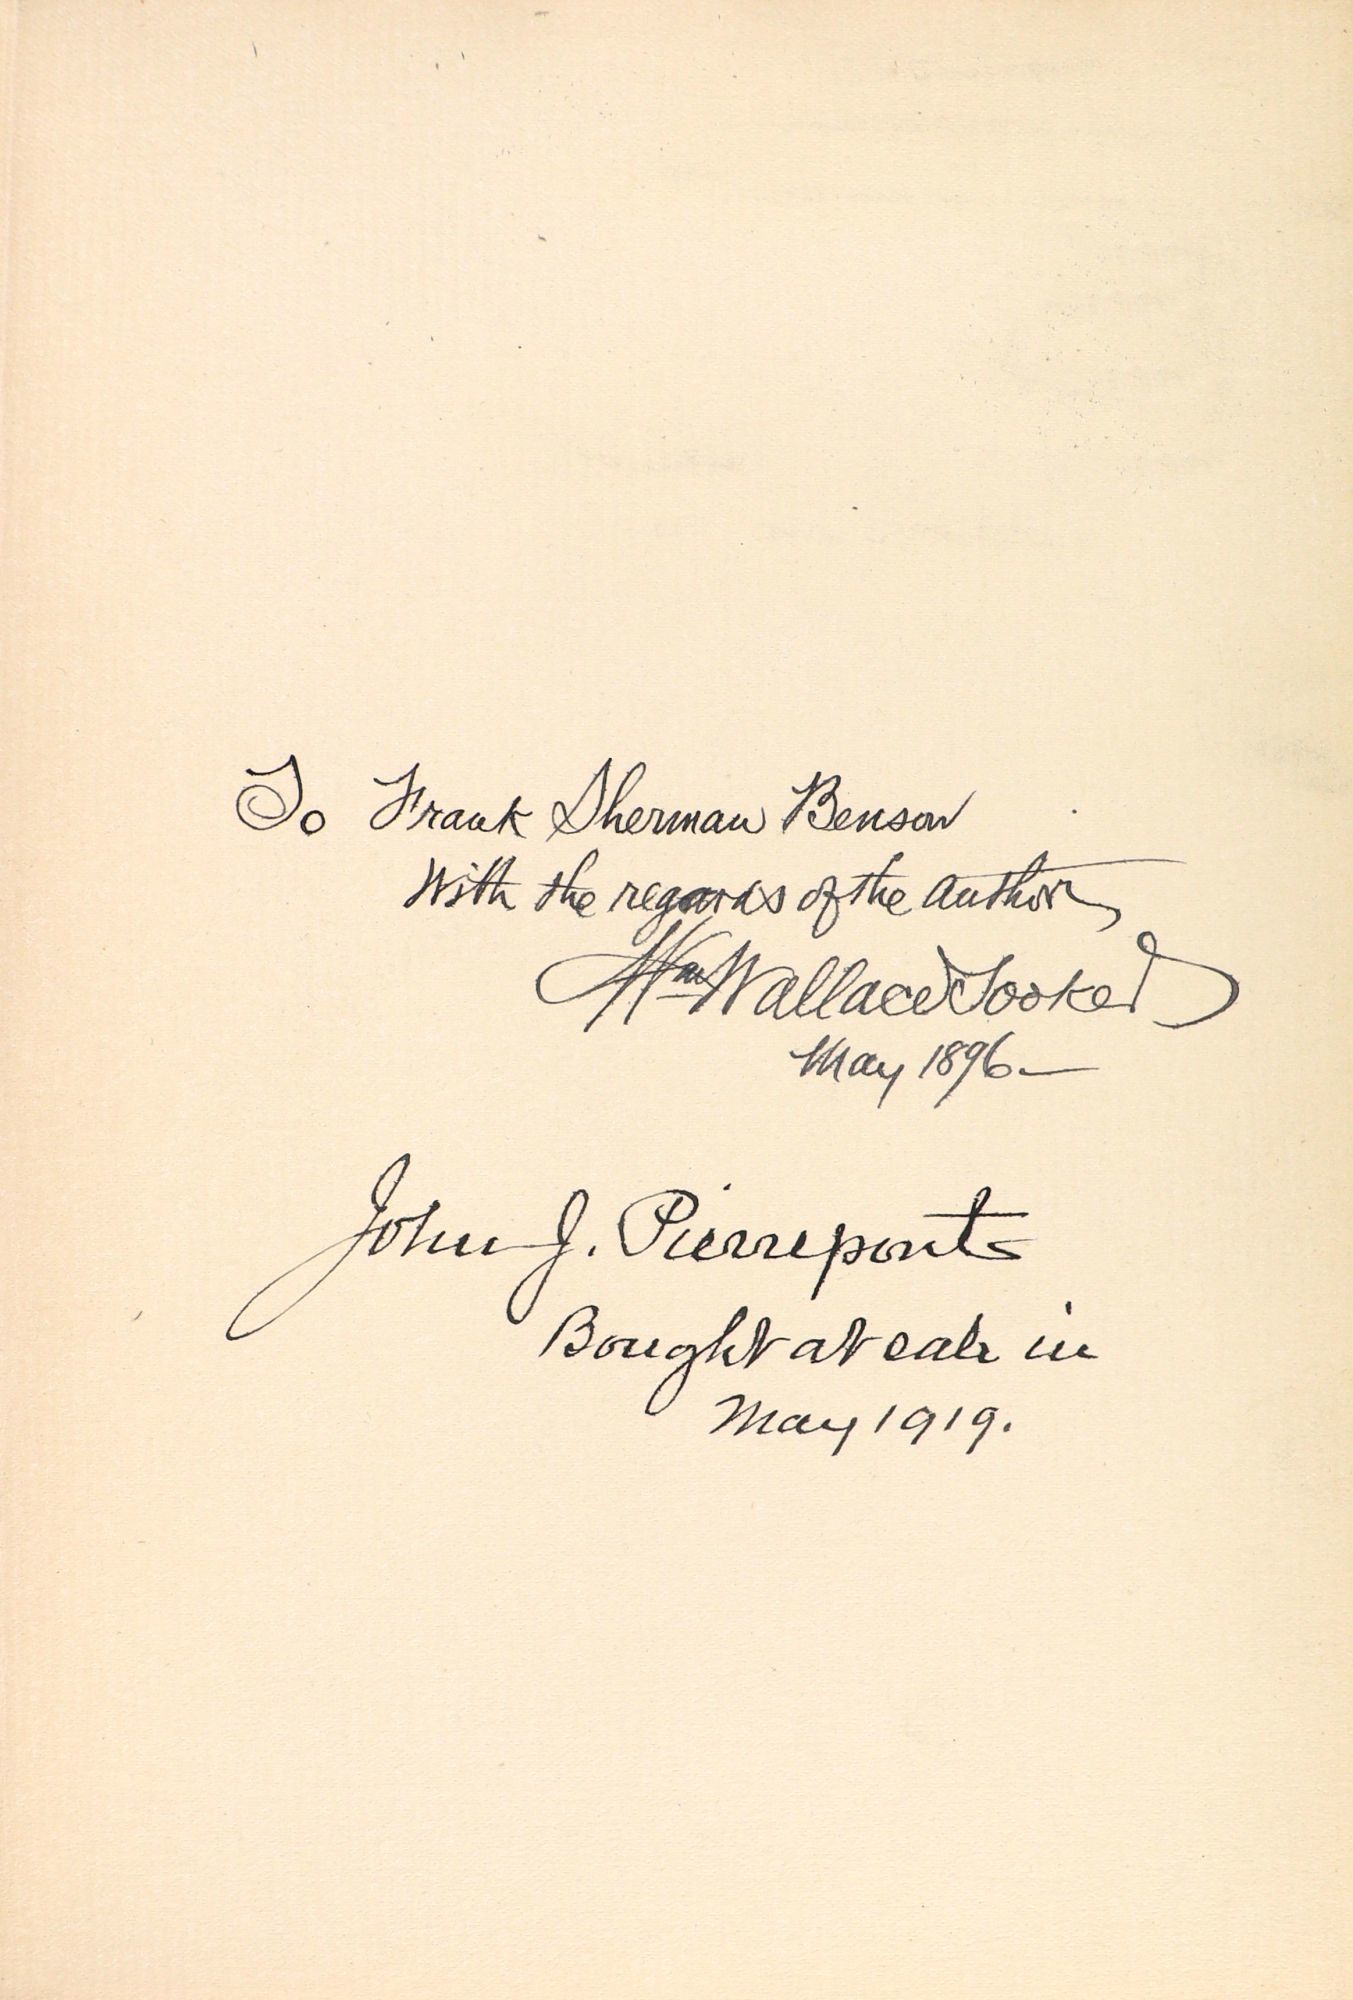 To Frank Sherman Benson
With the regards of the author,
Wm Wallace Tooker
May 1896—
John J. Pierrepont
Bought at sale in
May 1919.